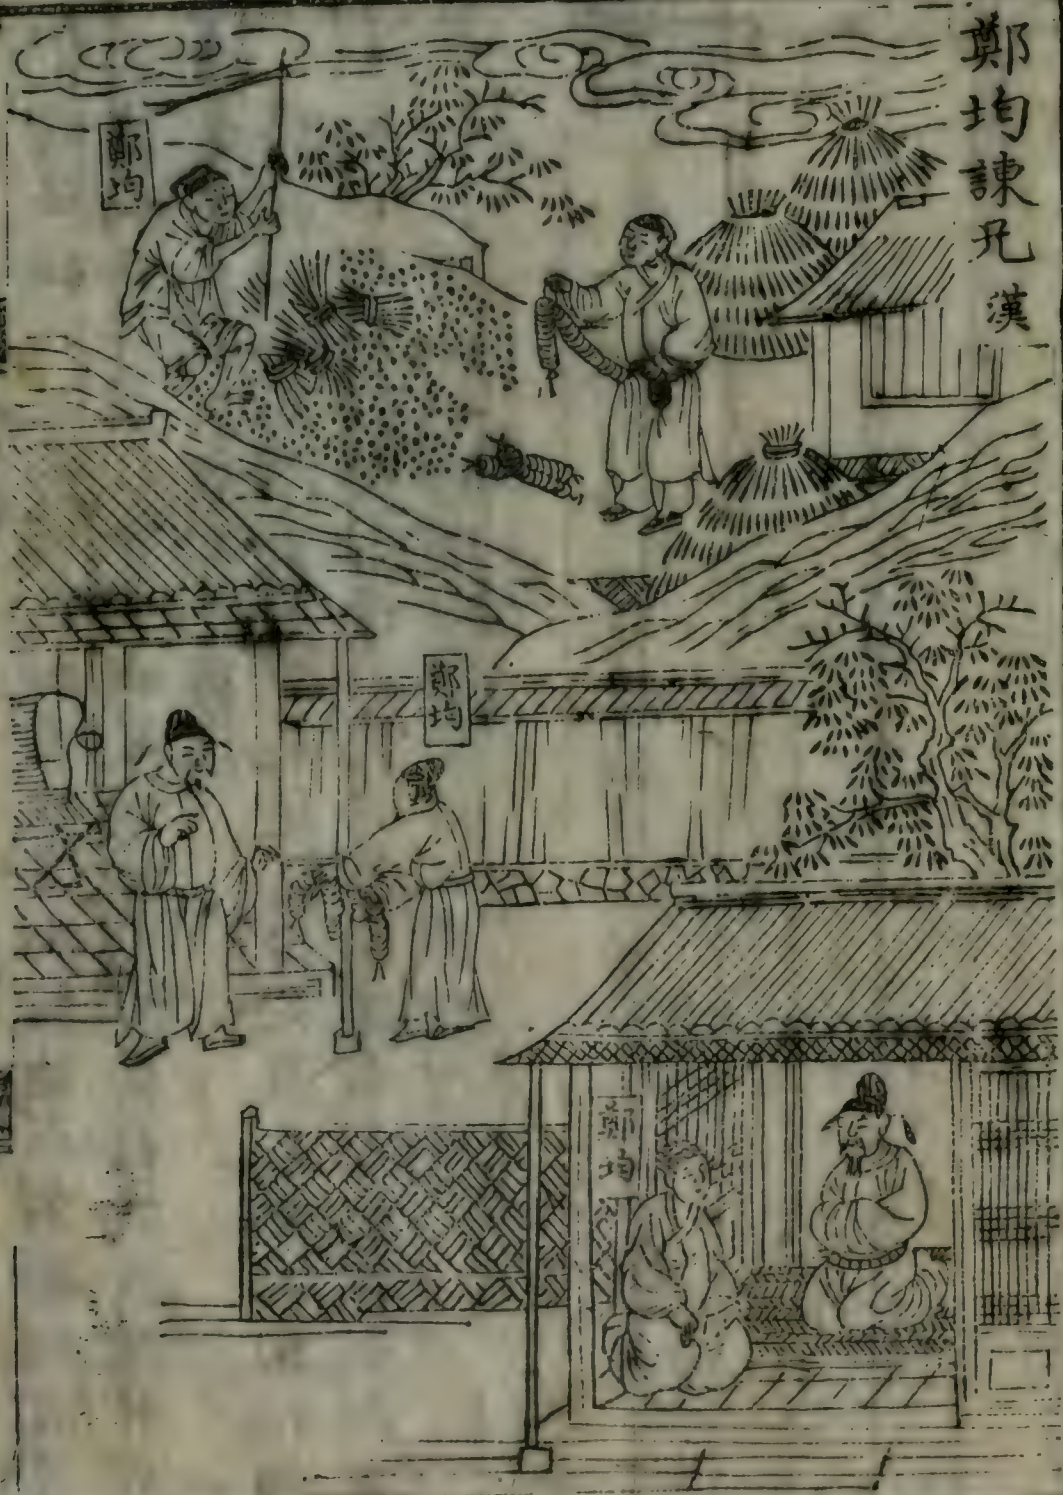 鄭均諫兄 漢
鄭均
鄭均
鄭均